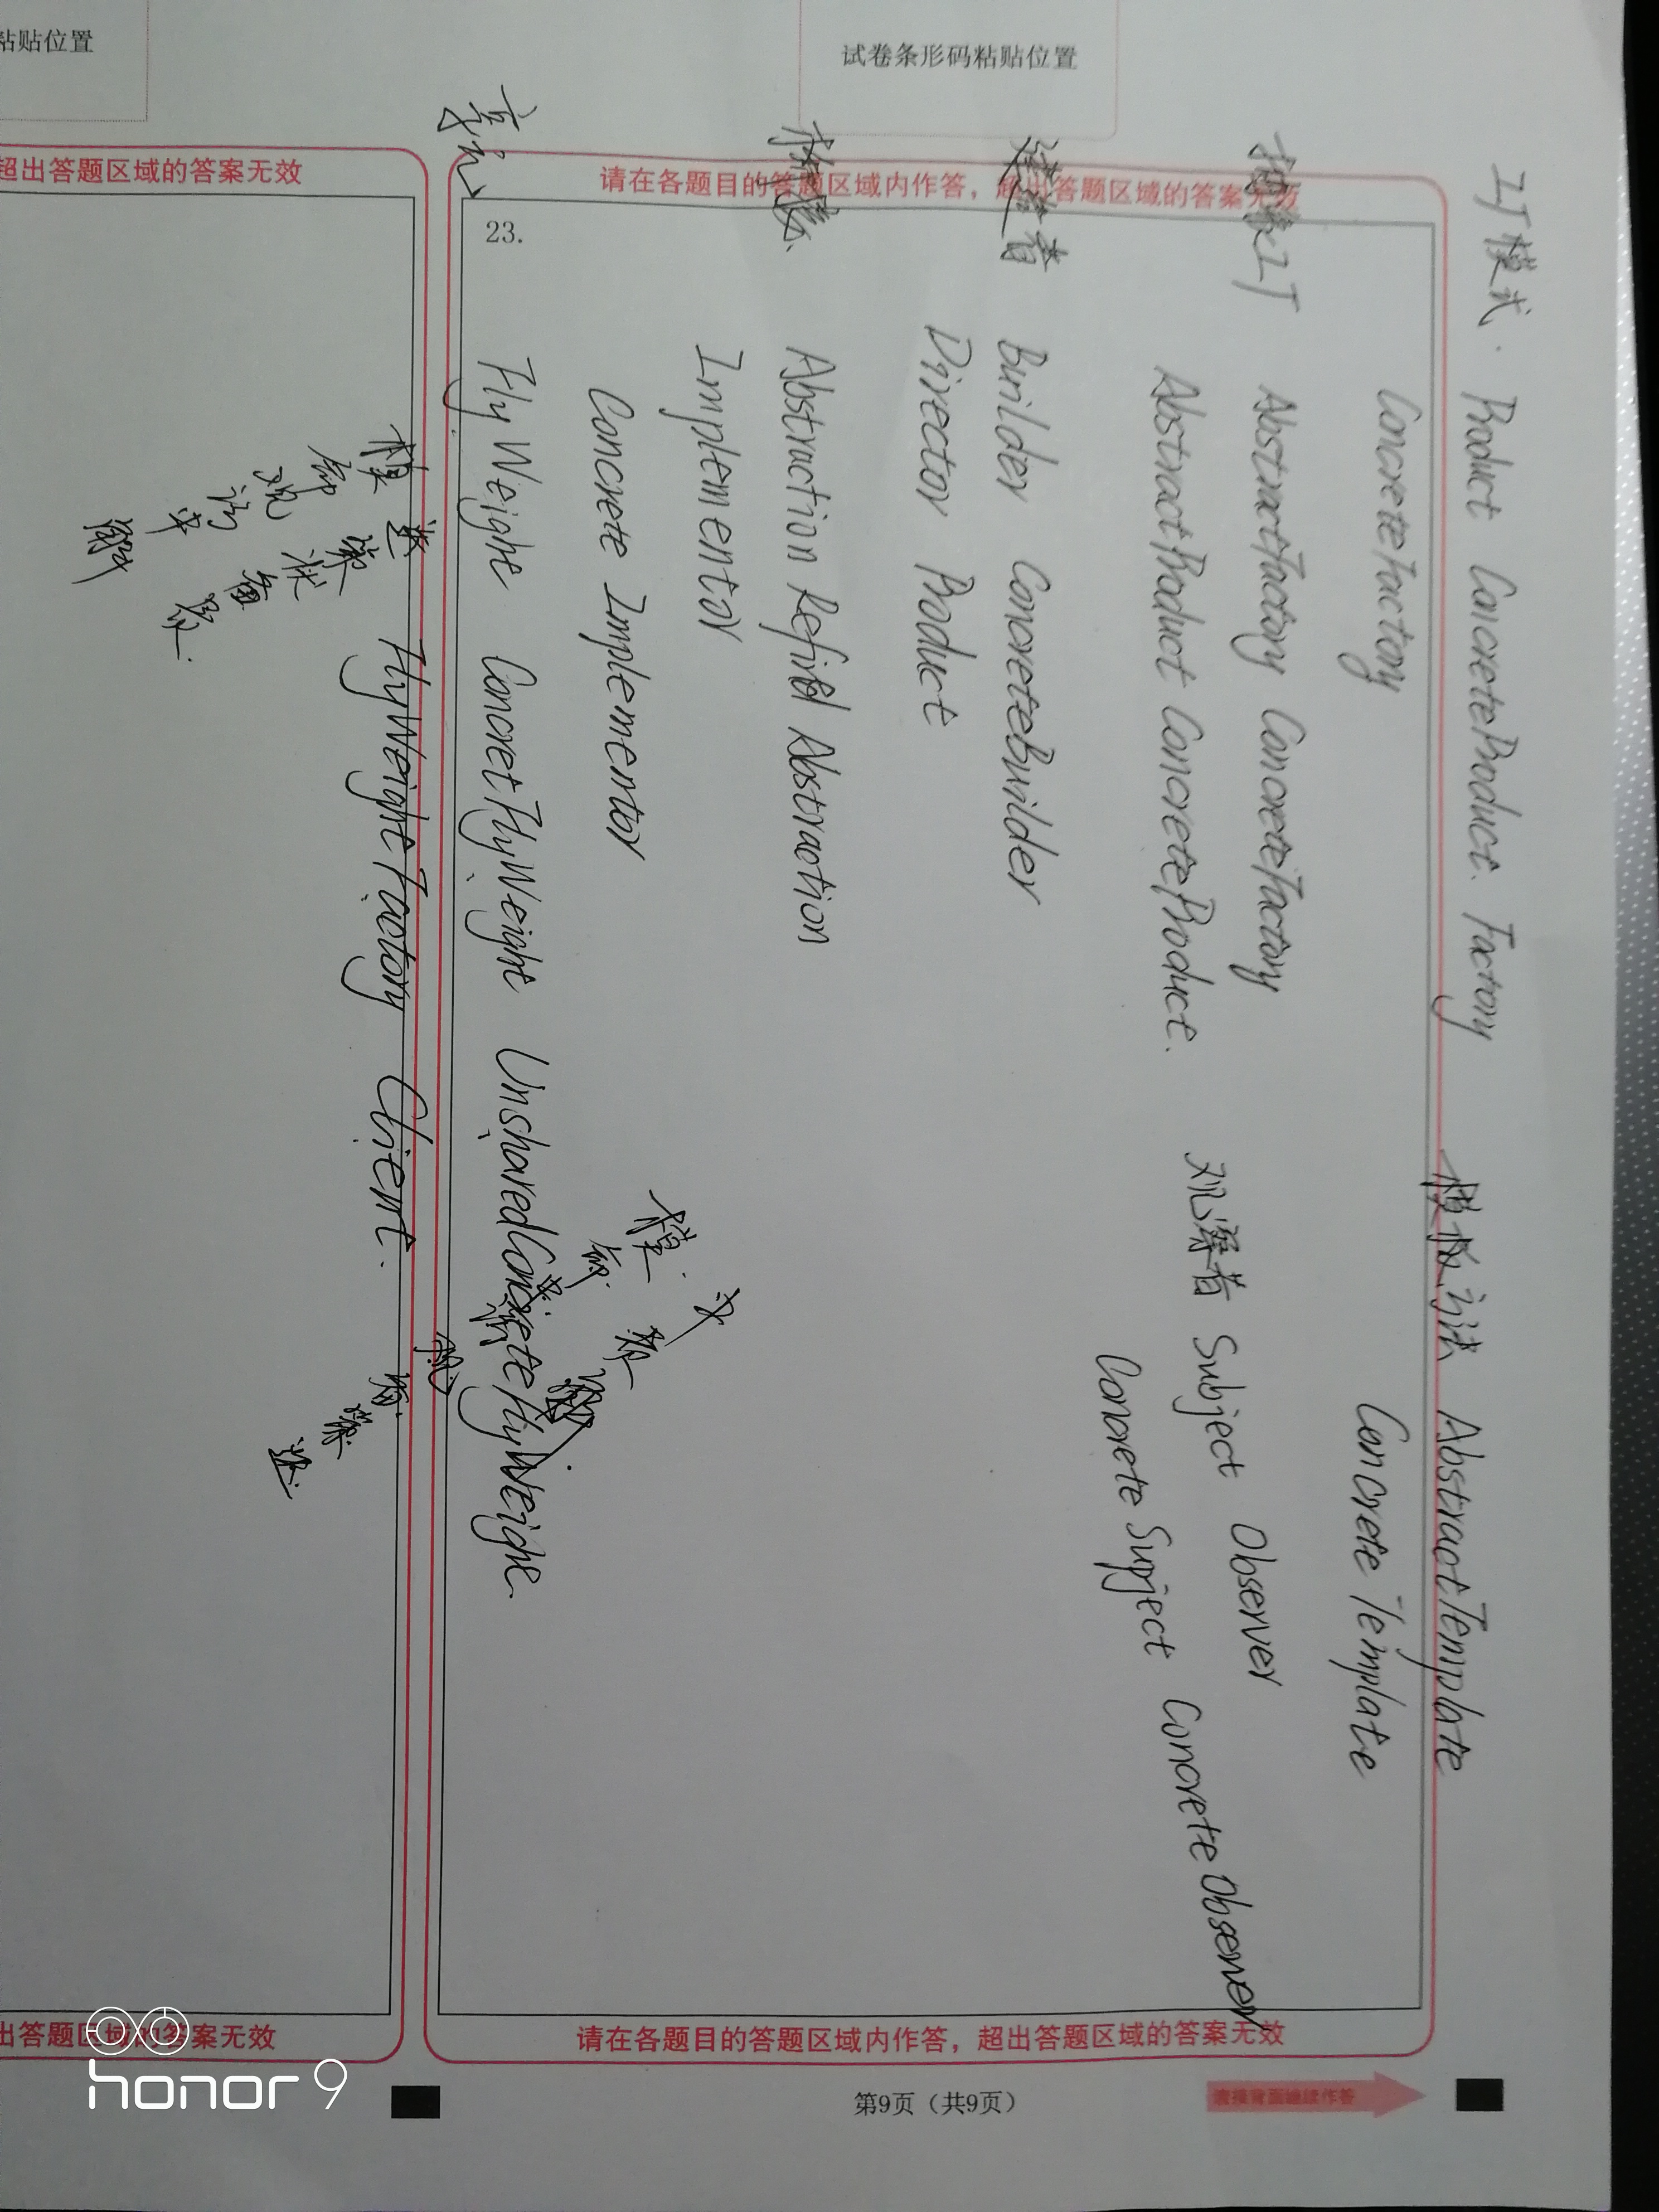 粘贴位置
试卷条形码粘贴位置
超出答题区域的答案无效
请在各题目的答题区域内作答，超出答题区域的答案无效
23.
工厂模式. Product ConcreteProduct. Factory
ConcreteFactory
抽象工厂 AbstractFactory ConcreteFactory
AbstractProduct ConcreteProduct.
建造者 Builder ConcreteBuilder
Director Product
Abstraction Abstraction
Implementor
Concrete Implementor
享元 FlyWeight ConcretFlyWeight UnsharedConcreteFlyWeight.
FlyWeightFactory Client.
模板方法 AbstractTemplate
Concrete Template
观察者 Subject Observer
Concrete Supject ConcreteObserver
模 迭
命 策
观 状
备
中
模. 中
命.
策.
迭.
出答题区域的答案无效
请在各题目的答题区域内作答，超出答题区域的答案无效
第9页（共9页）
请接背面继续作答
honor 9